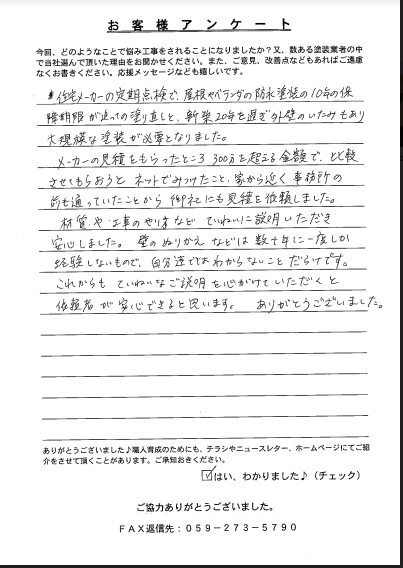 お客様アンケート
今回、どのようなことで悩み工事をされることになりましたか？又、数ある塗装業者の中
で当社選んで頂いた理由をお聞かせください。また、ご意見、改善点などもあればご遠慮
なくお書きください。応援メッセージなども嬉しいです。
住宅メーカーの定期点検で、屋根やベランダの防水塗装の10年の保
障期限が迫っての塗り直しと、新築20年を過ぎ外壁のいたみもあり
大規模な塗装が必要となりました。
メーカーの見積をもらったところ 300万を超える金額で、比較
させてもらおうと ネットでみつけたこと、家から近く事務所の
前も通っていたことから 御社にも見積を依頼しました。
材質や工事のやり方など ていねいに説明いただき
安心しました。壁のぬりかえ などは 数十年に一度しか
経験しないもので、自分達ではわからないこと だらけです。
これからも ていねいなご説明を心がけていただくと
依頼者が安心できると思います。 ありがとうございました。
ありがとうございました♪職人育成のためにも、チラシやニュースレター、ホームページにてご紹
介をさせて頂くことがあります。ご承知おきください。
☑はい、わかりました♪（チェック）
ご協力ありがとうございました。
ＦＡＸ返信先：０５９－２７３－５７９０